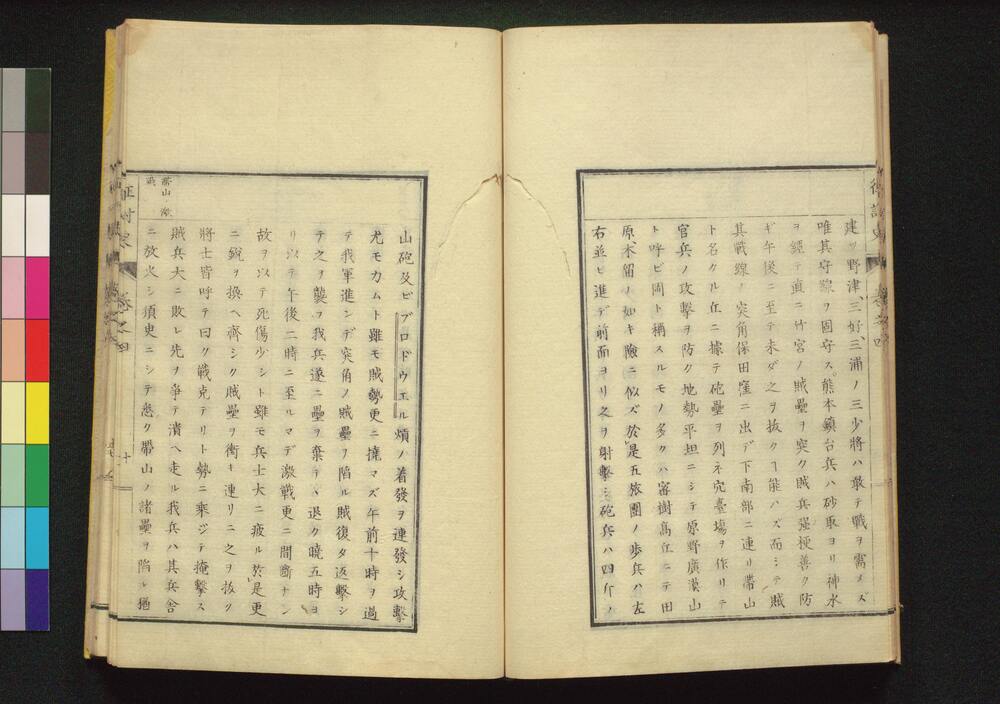 建ツ野津、三好、三浦ノ三少將ハ敢テ戰ヲ需メズ
唯其守線ヲ固守ス。熊本鎭台兵ハ砂取ヨリ神水
ヲ經テ直ニ竹宮ノ賊壘ヲ突ク賊兵强梗善ク防
ギ午後ニ至テ未ダ之ヲ抜クヿ能ハズ而シテ賊
其戰線ノ突角保田窪ニ出デ下南部ニ連リ帶山
ト名クル丘ニ據テ砲壘ヲ列ネ穴臺場ヲ作リテ
官兵ノ攻擊ヲ防ク地勢平坦ニシテ原野廣漠山
ト呼ビ岡ト稱スルモノ多クハ審樹高丘ニテ田
原、木留ノ如キ險ニ似ズ於是五旅團ノ歩兵ハ左
右並ビ進デ前面ヨリ之ヲ射擊シ砲兵ハ四斤ノ
山砲及ビブロドウエル煩ノ着發ヲ連發シ攻擊
尤モカムト雖モ賊勢更ニ撓マズ午前十時ヲ過
テ我軍進ンデ突角ノ賊壘ヲ陷ル賊復タ返擊シ
テ之ヲ襲ヲ我兵遂ニ壘ヲ棄テヽ退ク曉五時ヨ
リ以テ午後二時ニ至ルマデ激戰更ニ間斷ナシ
故ヲ以テ死傷少シト雖モ兵士大ニ疲ル於是更
ニ銳ヲ換ヘ齊シク賊壘ヲ衝キ連リニ之ヲ抜ク
將士皆呼テ曰ク戰克テリト勢ニ乘ジテ掩擊ス
賊兵大ニ敗レ先ヲ爭テ潰ヘ走ル我兵ハ其兵舍
ニ放火シ須臾ニシテ悉ク帶山ノ諸壘ヲ陷ル猶
帶山ノ激
戰
卷之四